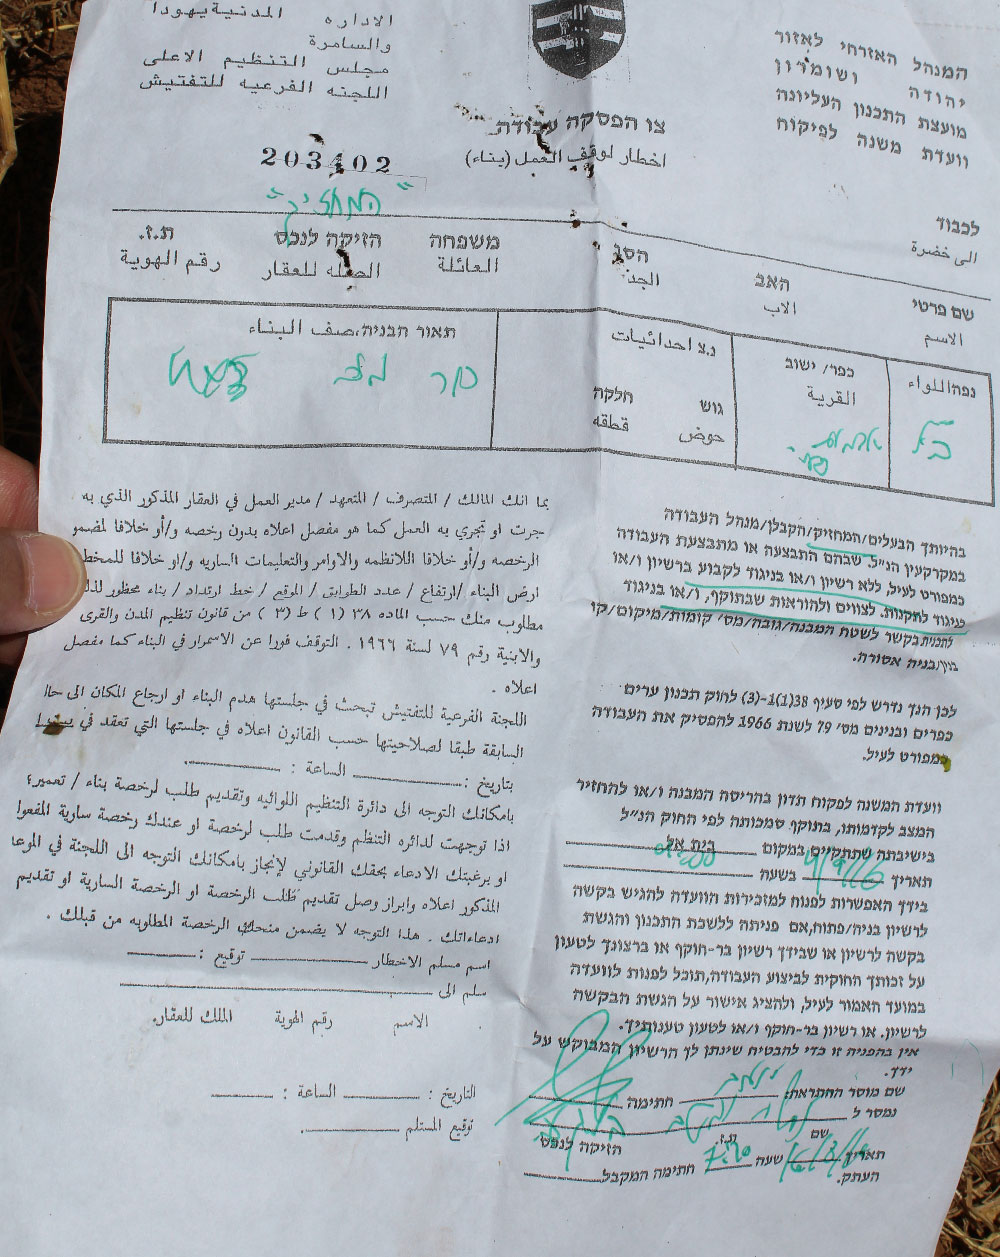 המנהל האזרחי לאזור
יהודה ושומרון
מועצת התכנון העליונה
וועדת משנה לפיקוח
الاداره المدنية يهودا
والسامرة
مجلس التنظيم الاعلى
اللجنه الفرعيه للتفتيش
צו הפסקה עבודה
اخطار لوقف العمل (بناء)
203402
"המחזיק"
לכבוד
الى حضرة
שם פרטי האב הסב משפחה הזיקה לנכס ת.ז.
الاسم الاب الجد العائلة الصله للعقار رقم الهوية
נפה/اللواء
כפר/ ישוב
القرية
נ.צ احداثيات
גוש חלקה
حوض قطعه
תאור הבניה،صف البناء
בהיותך הבעלים/המחזיק/הקבלן/מנהל העבודה
במקרקעין הנ״ל, שבהם התבצעה או מתבצעת העבודה
כמפורט לעיל, ללא רשיון ו/או בניגוד לקבוע ברשיון ו/או
בניגוד לתקנות, לצווים ולהוראות שבתוקף, ו/או בניגוד
לתכנית בקשר לשטח המבנה/גובה/מס׳ קומות/מיקום/קו
בנין/בניה אסורה.
לכן הנך נדרש לפי סעיף 38(1)-(3) לחוק תכנון ערים
כפרים ובנינים מס׳ 79 לשנת 1966 להפסיק את העבודה
כמפורט לעיל.
וועדת המשנה לפקוח תדון בהריסת המבנה ו/או להחזיר
המצב לקדמותו, בתוקף סמכותה לפי החוק הנ״ל
בישיבתה שתתקיים במקום בית אל
תאריך בשעה
בידך האפשרות לפנות למזכירות הוועדה להגיש בקשה
לרשיון בניה/פתוח,אם פניתה ללשכת התכנון והגשת
בקשה לרשיון או שבידך רשיון בר-תוקף או ברצונך לטעון
על זכותך החוקית לביצוע העבודה,תוכל לפנות לוועדה
במועד האמור לעיל, ולהציג אישור על הגשת הבקשה
לרשיון. או רשיון בר-תוקף ו/או לטעון טענותיך.
אין בהפניה זו כדי להבטיח שינתן לך הרשיון המבוקש על
ידך.
שם מוסר התתראה: חתימה
נמסר ל
שם ת.ז. הזיקה לנכס
תאריך שעה חתימה המקבל
העתק.
بما انك المالك / المتصرف / المتعهد / مدير العمل في العقار المذكور الذي به
جرت او تجري به العمل كما هو مفصل اعلاه بدون رخصه و/أو خلافا لمضمو
الرخصه و/أو خلافا اللانظمه والاوامر والتعليمات الساريه و/او خلافا للمخطط
ارض البناء /ارتفاع / عدد الطوابق / الموقع / خط ارتداد / بناء محظور لذا
مطلوب منك حسب الماده ٣٨ (١ ) ط (٣ ) من قانون تنظيم المدن والقرى
والابنية رقم ٧٩ لسنة ١٩٦٦ . التوقف فورا عن الاسمرار في البناء كما مفصل
اعلاه .
اللجنة الفرعية للتفتيش تبحث في جلستها هدم البناء او ارجاع المكان الى حالا
السابقة طبقا لصلاحيتها حسب القانون اعلاه في جلستها التي تعقد في
بتاريخ : الساعة :
بامكانك التوجه الى دائرة التنظيم اللوائيه وتقديم طلب لرخصة بناء / تعمير؟
اذا توجهت لدائره التنظم وقدمت طلب لرخصة او عندك رخصة سارية المفعوا
او برغبتك الادعاء بحقك القانوني لإنجاز بامكانك التوجه الى اللجنة في الموعا
المذكور اعلاه وابراز وصل تقديم طلب الرخصة او الرخصة السارية او تقديم
ادعاءاتك . هذا التوجه لا يضمن منحك الرخصة المطلوبه من قبلك .
اسم مسلم الاخطار توقيع :
سلم الى
الاسم رقم الهوية الملك للعقار.
التاريخ : الساعة :
توقيع المستلم :